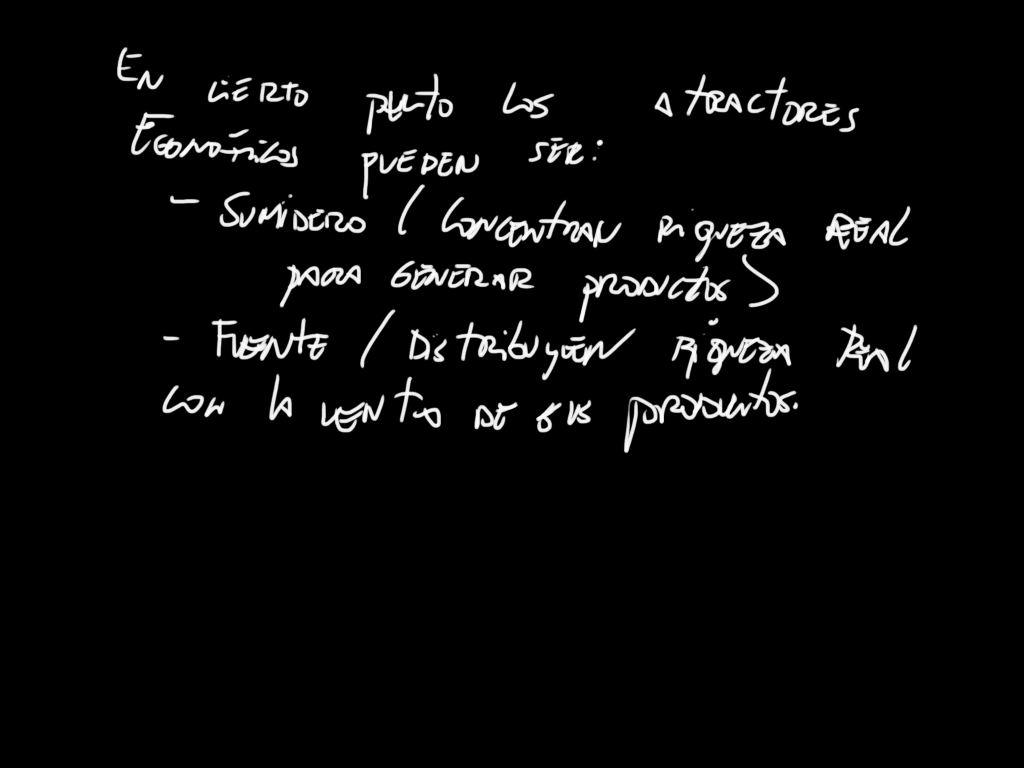 EN CIERTO PUNTO LOS ATRACTORES
ECONÓMICOS PUEDEN SER:
- SUMIDERO (CONCENTRAN RIQUEZA REAL
PARA GENERAR PRODUCTOS)
- FUENTE (DISTRIBUYEN RIQUEZA REAL
CON LA VENTA DE SUS PRODUCTOS.